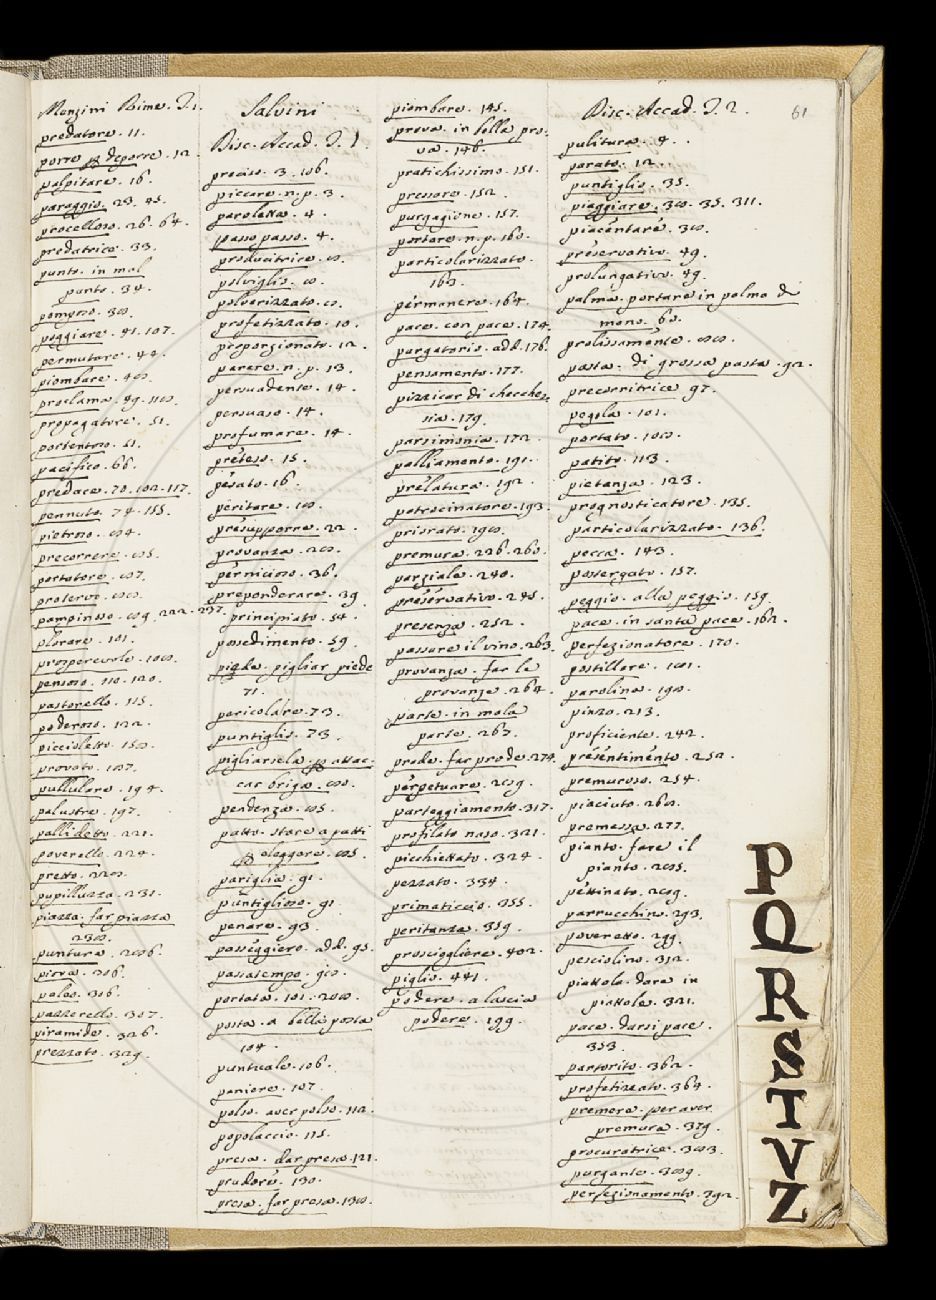 Menzini Rime. T. 1.
predatore. 11.
porre deporre. 12
palpitare. 16.
pareggio. 23. 45.
procelloso. 26. 64.
predatrice. 33.
punto. in mal
punto. 34.
pomposo.
poggiare. 41. 107.
permutare. 44.
piombare.
proclama. 49.
propagatore. 51.
portentoso. 61.
pacifico. 66.
predace. 70. 102. 117.
pennuto. 74. 155.
pietroso.
precorrere.
portatore.
protervo.
pampinoso.
plorare. 101.
prosperevole.
pensoso. 110. 120.
pastorello. 115.
poderoso. 122.
piccioletto.
provato.
pullulare. 194.
palustre. 197.
pallidetto. 221.
poverello. 224.
pretto.
pupilluzza. 231.
piazza. far piazza
puntura.
piova. 306.
paleo. 306.
pazzerello. 307.
piramide. 326.
prezzato. 329.
Salvini
Disc. Accad. T. 1.
preciso. 3. 106.
piccare. n. p. 3.
paroletta. 4.
passo passo. 4.
produttrice.
polviglio.
polverizzato.
profetizzato. 10.
proporzionato. 12.
parere. n. p. 13.
persuadente. 14.
persuaso. 14.
profumare. 14.
preteso. 15.
pesato. 16.
peritare.
presupporre. 22.
provanza.
pernicioso. 36.
preponderare. 39
principiato. 54.
possedimento. 59.
piede. pigliar piede
71.
pericolare. 73.
puntiglio. 73.
pigliarsela attac-
car briga.
pendenza.
patto. stare a patti
eleggere.
pariglia. 91.
puntiglioso. 91
penare. 93.
passeggiero. add. 95.
passatempo.
portata. 101.
posta. a bella posta
104.
puntuale. 106.
paniere. 107.
polso. aver polso. 112.
popolaccio. 115.
presa. dar presa. 121.
pudore. 130.
presa. far presa.
piombare. 145.
prova. in bella pro-
va. 146.
pratichissimo. 151.
pressore. 152.
purgagione. 157.
portare. n. p. 160.
particolarizzato.
163.
permanere. 164.
pace. con pace. 174.
purgatorio. add. 176.
pensamento. 177.
pizzicar di checches-
sia. 179.
parsimonia. 172.
palliamento. 191.
prelatura. 192.
patrocinatore. 193.
priorato.
premura. 226. 260.
parziale. 240.
preservativo. 245.
presenza. 252.
passare il vino. 263.
provanza. far le
provanze. 264.
parte. in mala
parte. 267.
prode. far prode. 274.
perpetuare.
parteggiamento. 317.
profilato naso. 321.
picchiettato. 324.
pezzato. 334.
primaticcio. 355.
peritanza. 359.
prosciogliere. 402.
piglio. 441.
podere. a lascia
podere. 199.
Disc. Accad. T. 2.
61
pulitura. 4.
parato. 12.
puntiglio. 35.
piaggiare. 30. 35. 311.
piacentare.
preservativo. 49.
prolungativo. 49.
palma. portare in palma di
mano. 60.
prolissamente.
pasta. di grossa pasta. 92.
precorritrice. 97.
pegola. 101.
portato.
patito. 113.
pietanza. 123.
prognosticatore. 135.
particolarizzato. 136.
pecca. 143.
postergato. 157.
peggio. alla peggio. 159.
pace. in santa pace. 162.
perfezionatore. 170.
postillare.
parolina.
pinzo. 213.
proficiente. 242.
presentimento. 252.
premuroso. 254.
piaciuto.
premessa. 277.
pianto. fare il
pianto.
pettinato.
parrucchino. 293.
poveretto. 299.
pesciolino. 312.
piattola. dare in
piattole. 321.
pace. darsi pace.
353.
partorito. 362.
profetizzato. 364.
premere. per aver
premura. 379.
procuratrice.
purgante.
perfezionamento. 392.
P
Q
R
S
T
V
Z